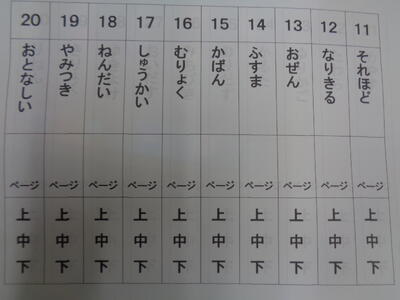 11 それほど ページ 上 中 下
12 なりきる ページ 上 中 下
13 おぜん ページ 上 中 下
14 ふすま ページ 上 中 下
15 かばん ページ 上 中 下
16 むりょく ページ 上 中 下
17 しゅうかい ページ 上 中 下
18 ねんだい ページ 上 中 下
19 やみつき ページ 上 中 下
20 おとなしい ページ 上 中 下